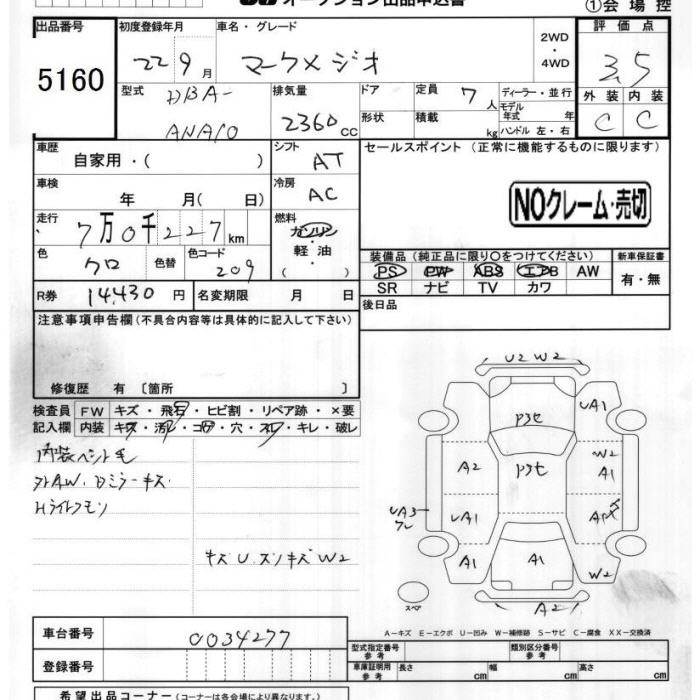 オークション出品申込書
①会場控
出品番号
5160
初度登録年月
22 9月
車名・グレード
マークXジオ
2WD・4WD
評価点
3.5
外装 内装
C C
型式
DBA-
ANA10
排気量
2360cc
ドア
形状
定員 7人
積載 kg
ディーラー・並行
モデル年式 年
ハンドル 左・右
車歴
自家用・( )
シフト
AT
セールスポイント(正常に機能するものに限ります)
NOクレーム・売切
車検
年 月( 日)
冷房
AC
走行
7万0千227km
燃料
ガソリン
軽油
( )
色
クロ
色替
色コード
209
装備品(純正品に限り○をつけてください)
新車保証書
PS PW ABS エアB AW
SR ナビ TV カワ
有・無
R券 14,430円
名変期限 月 日
後日品
注意事項申告欄(不具合内容等は具体的に記入して下さい)
修復歴 有〔箇所 〕
検査員記入欄
FW キズ・飛石・ヒビ割・リペア跡・×要
内装 キズ・汚れ・コゲ・穴・スレ・キレ・破レ
内装ペント毛
外AW、Dミラーキズ
Hライトクモリ
キズU.スリキズW2
U2 W2
P3セ
UA1
A2
P3セ
W2
A1
UA3
ワレ
UA1
A1
A1
A1
W2
A2
スペア
A-キズ E-エクボ U-凹み W-補修跡 S-サビ C-腐食 XX-交換済
車台番号
0034277
登録番号
型式指定番号 参考
類別区分番号 参考
車庫証明用 参考
長さ cm
幅 cm
高さ cm
希望出品コーナー(コーナーは各会場により異なります。)